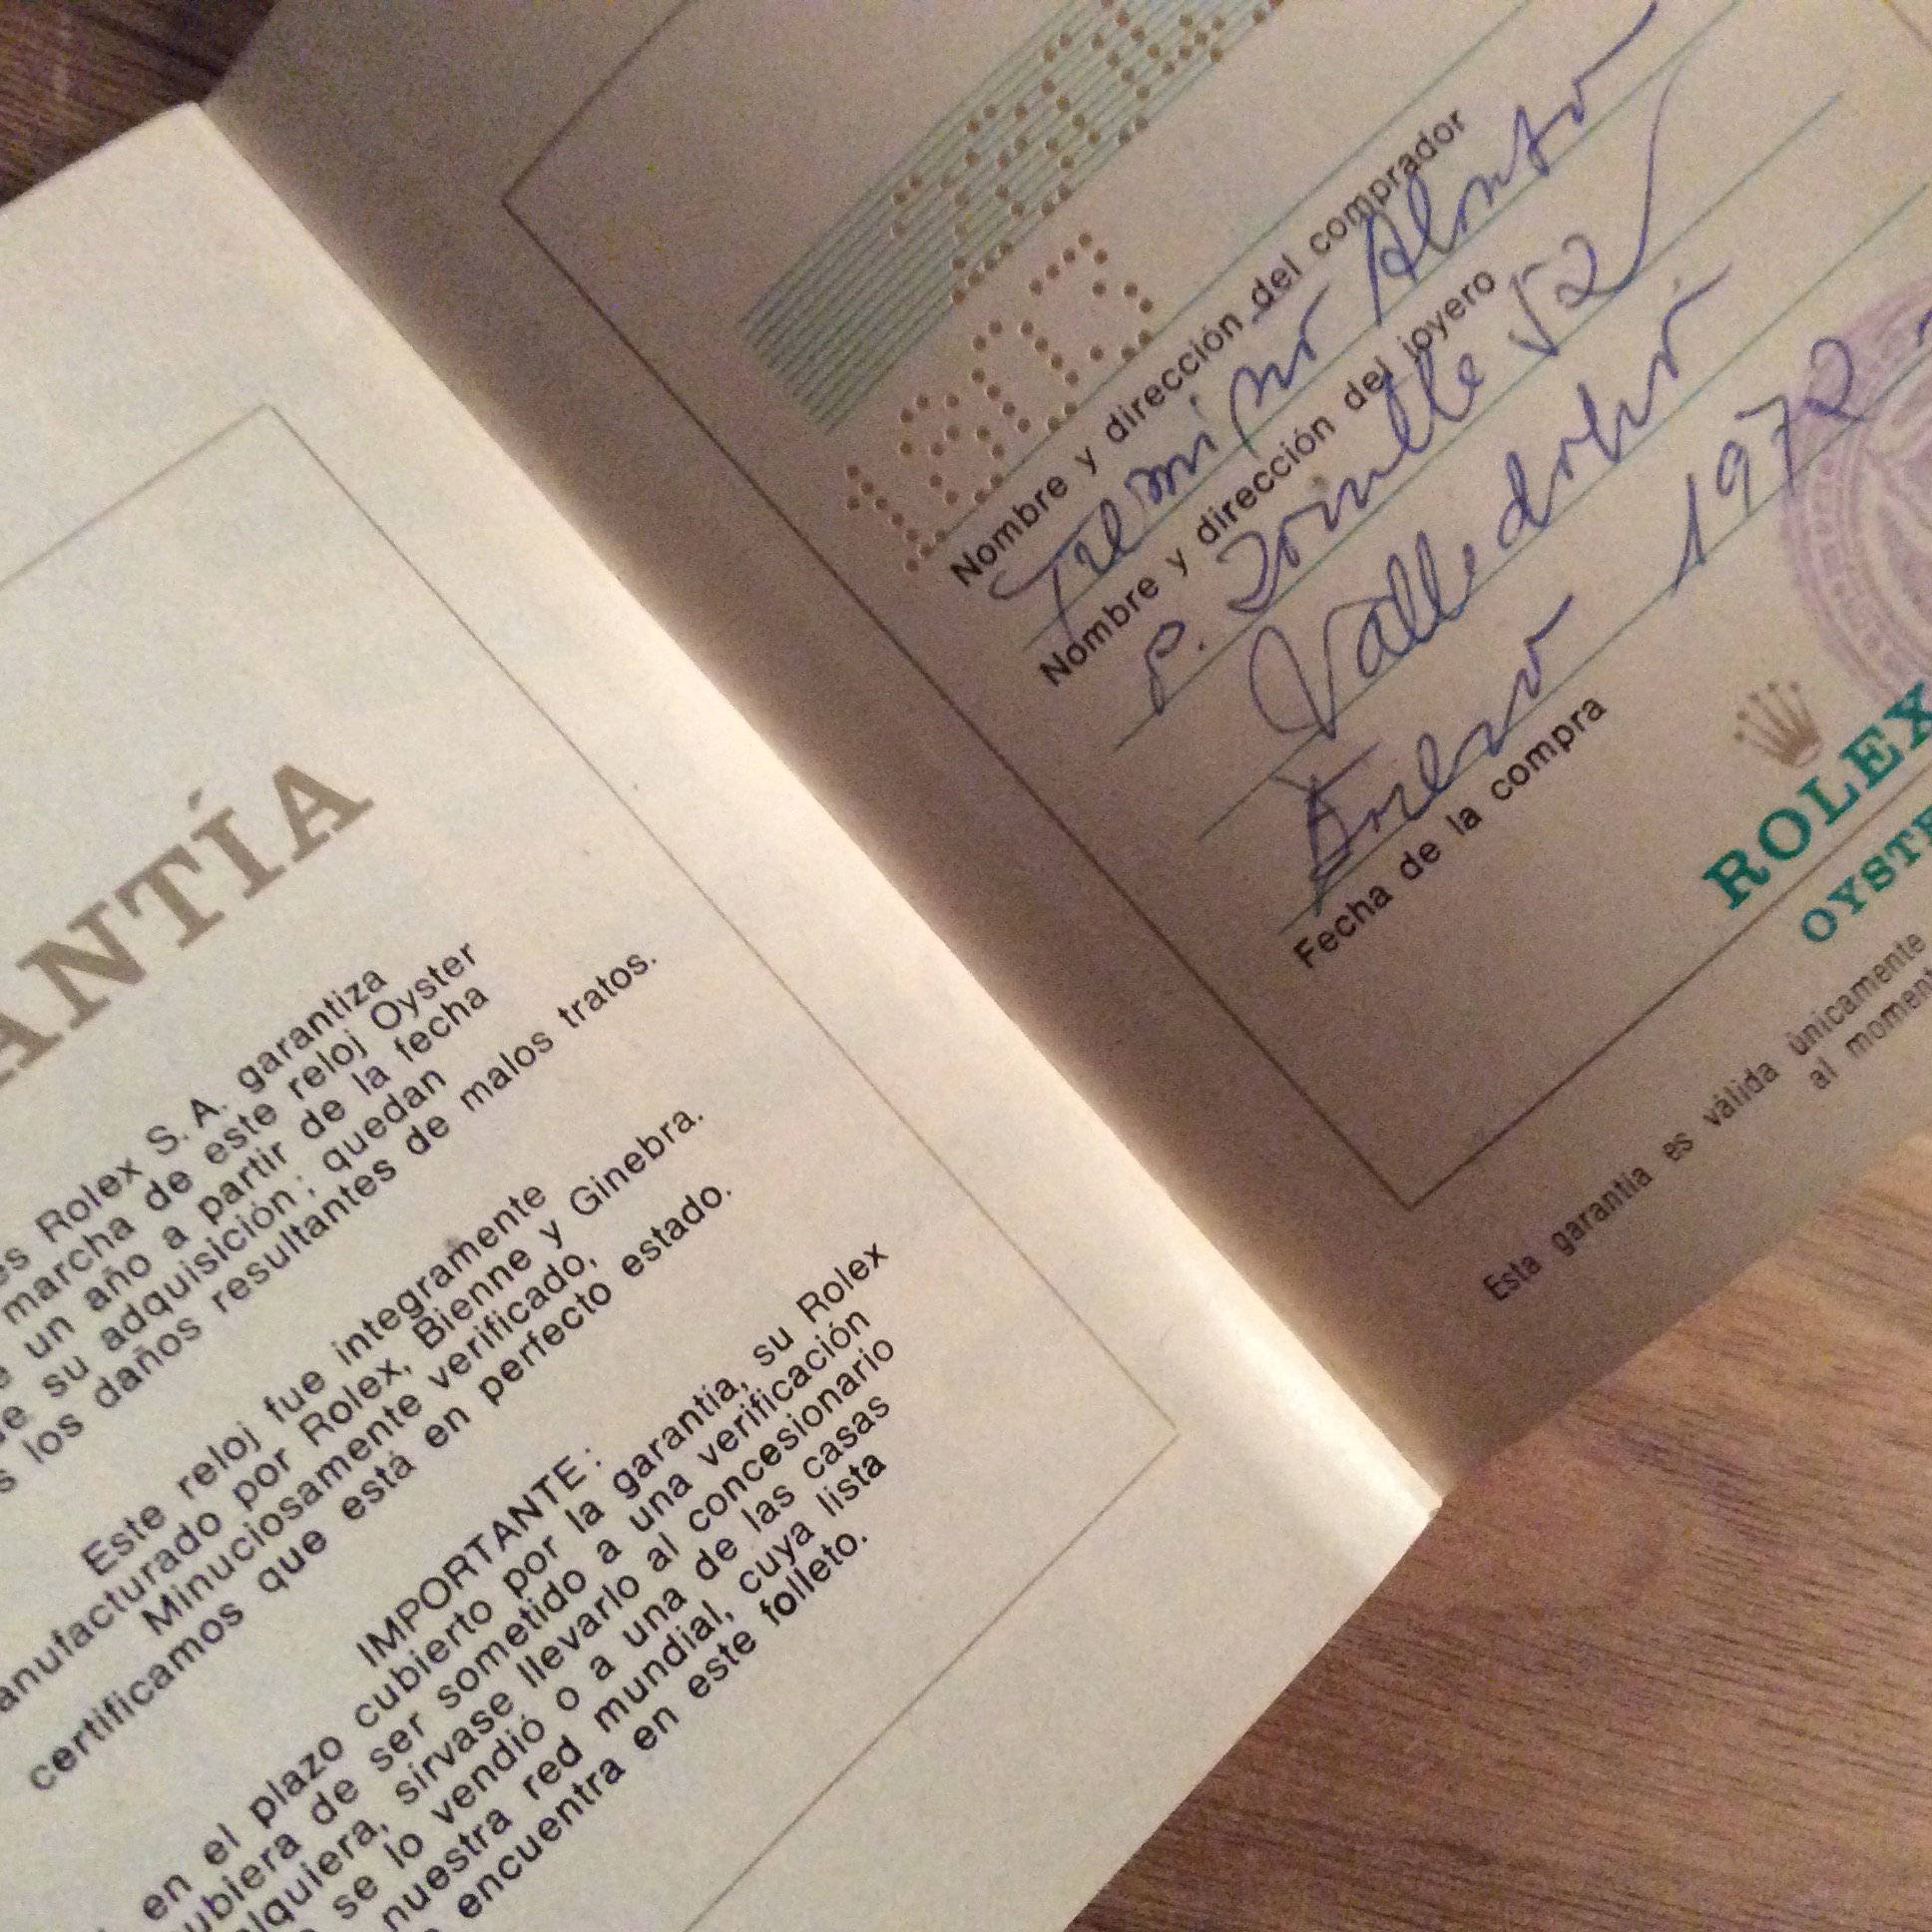 ANTÍA
es Rolex S. A. garantiza
marcha de este reloj Oyster
e un año a partir de la fecha
e su adquisición; quedan
s los daños resultantes de malos tratos.
Este reloj fue integramente
anufacturado por Rolex, Bienne y Ginebra.
Minuciosamente verificado,
certificamos que está en perfecto estado.
IMPORTANTE:
en el plazo cubierto por la garantía, su Rolex
ubiera de ser sometido a una verificación
alquiera, sirvase llevarlo al concesionario
se lo vendió o a una de las casas
nuestra red mundial, cuya lista
encuentra en este folleto.
Nombre y dirección del comprador
Alonso
Nombre y dirección del joyero
P. Zorrilla 52
Valladolid
Enero 1972
Fecha de la compra
ROLEX
OYSTE
Esta garantía es válida únicamente
al moment